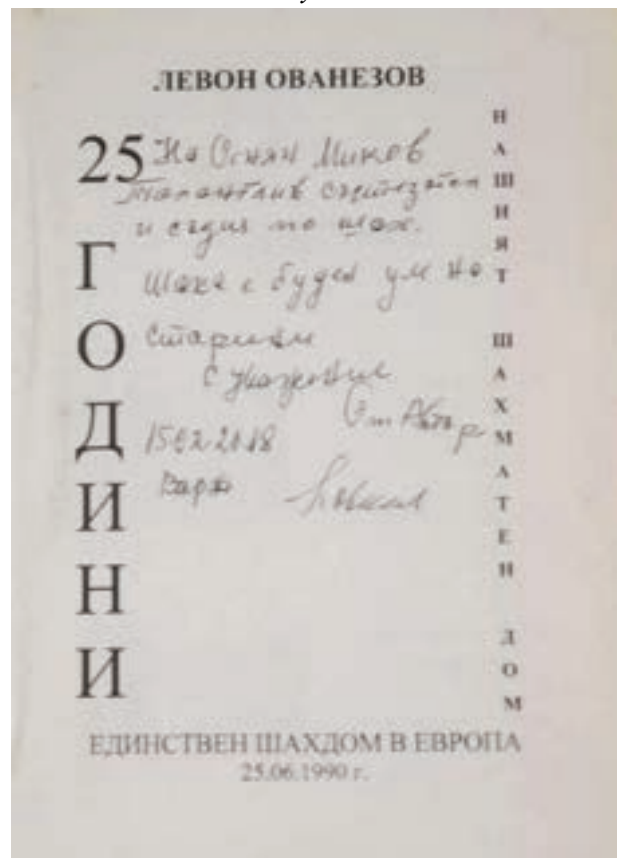 ЛЕВОН ОВАНЕЗОВ
25 ГОДИНИ
НАШИЯТ ШАХМАТЕН ДОМ
На Огнян Минев
Талантлив състезател
и съдия по шах.
Шаха е буден ум на
С уважение
От Автора
15.02.2018
Варна
ЕДИНСТВЕН ШАХДОМ В ЕВРОПА
25.06.1990 г.